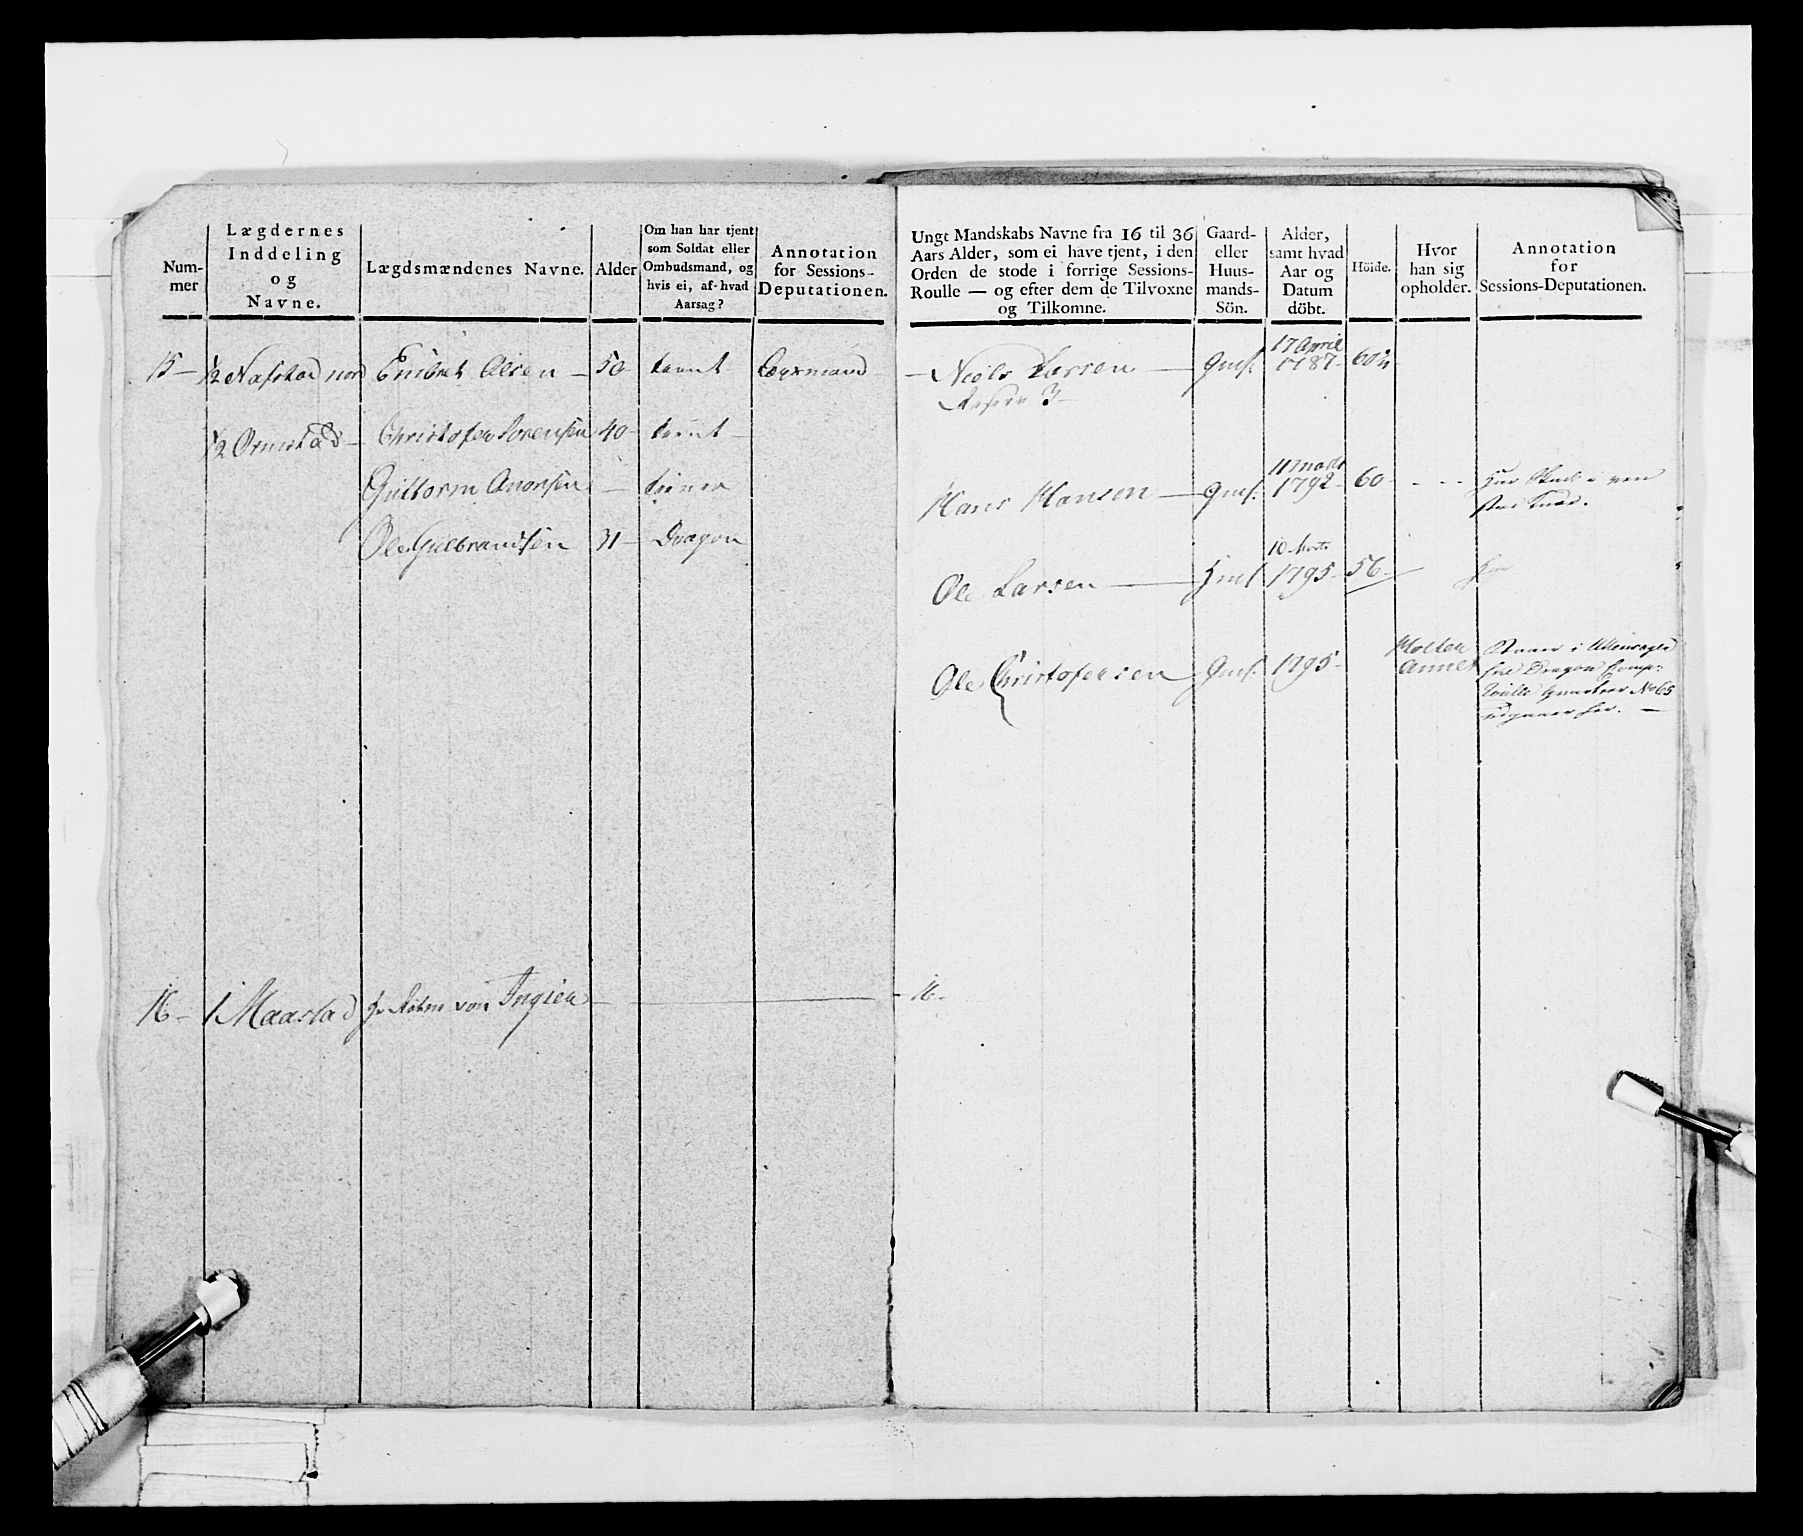 Num-
mer
Lægdernes
Inddeling
og
Navne.
Lægdsmændenes Navne.
Alder
Om han har tjent
som Soldat eller
Ombudsmand, og
hvis ei, af hvad
Aarsag?
Annotation
for Sessions-
Deputationen.
15 — 1/2 Nafstad nord Engebret Olsen — 50 tient
1/2 Ormstad — Christofer Sorensen 40 — tient —
Guttorm Anorsen — tiener
Ole Gulbrandsen 31 — Dragon
16 — 1 Maastad von Ingier —
Ungt Mandskabs Navne fra 16 til 36
Aars Alder, som ei have tjent, i den
Orden de stode i forrige Sessions-
Roulle — og efter dem de Tilvoxne
og Tilkomne.
Gaard-
eller
Huus-
mands-
Sön.
Alder,
samt hvad
Aar og
Datum
döbt.
Höide.
Hvor
han sig
opholder.
Annotation
for
Sessions-Deputationen.
17 April
— Niels Larsen — Gms. 1787 —
3 —
11 Marts
Hans Hansen — Gms. 1792 — 60 —
10 Marts
Ole Larsen — Hms 1795 — 56 —
Ole Christofersen Gms. 1795 —
Dragon Comp:
No 65
16 —